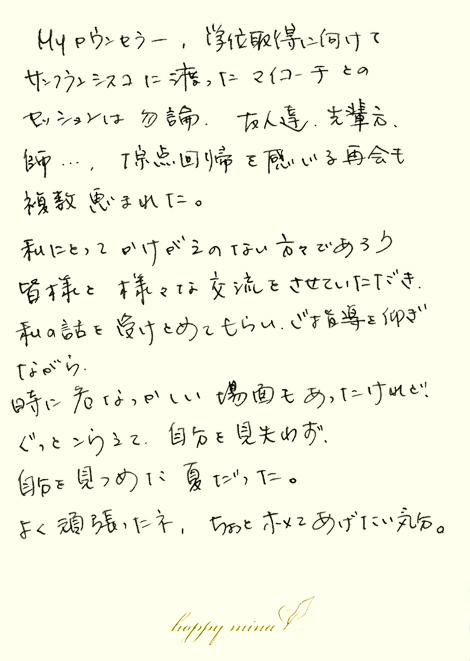 Myカウンセラー、学位取得に向けて
サンフランシスコに渡ったマイコーチとの
セッションは勿論、友人達、先輩方、
師…、原点回帰を感じる再会も
複数恵まれた。
私にとってかけがえのない方々であろう
皆様と様々な交流をさせていただき、
私の話を受けとめてもらい、ご指導を仰ぎ
ながら、
時に危なっかしい場面もあったけれど、
ぐっとこらえて、自分を見失わず、
自分を見つめた夏だった。
よく頑張ったネ、ちょっとホメてあげたい気分。
happy mina